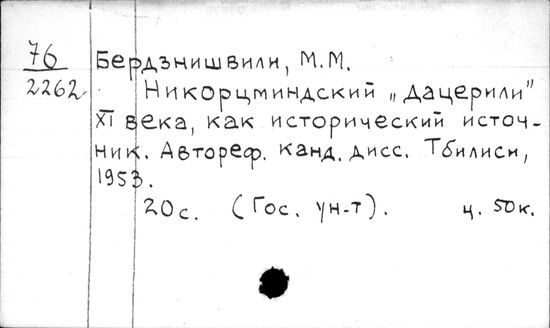 76
2262
Бердзнишвили, М.М.
Никорцминдский „Дацерили"
XI века, как исторический источ-
ник. Автореф. канд. дисс. Тбилиси,
1953.
20с. (Гос. ун-т). ц. 50к.